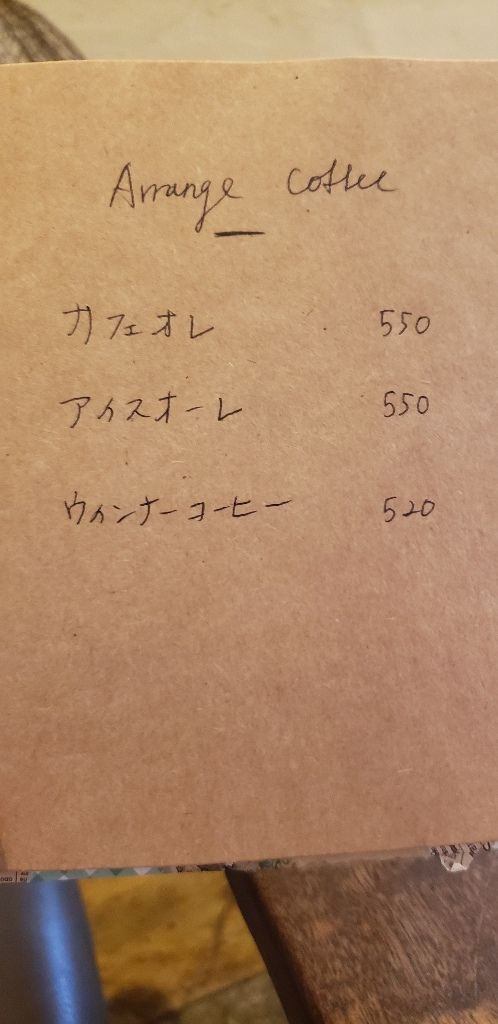 Arrange coffee
カフェオレ 550
アイスオーレ 550
ウィンナーコーヒー 520